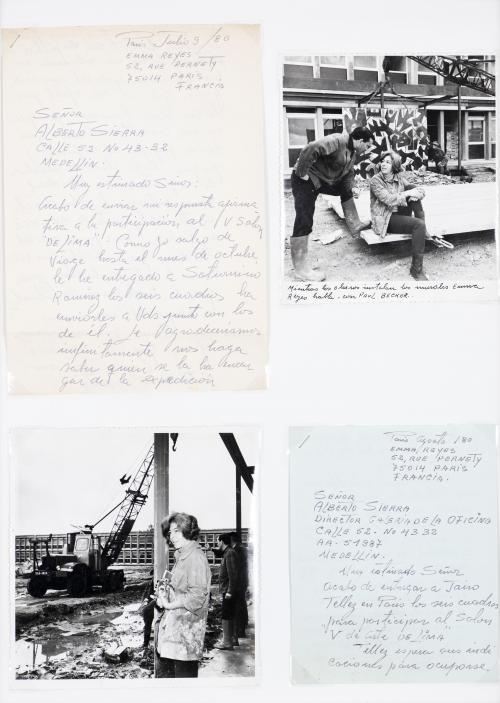 Paris Julio 9/80
EMMA REYES
52, RUE PERNETY
75014 PARIS
FRANCIA
SEÑOR
ALBERTO SIERRA
CALLE 52 No 43-32
MEDELLIN.
Muy estimado Señor:
Acabo de enviar mi respuesta afirma
tiva a la participación al V Salon
"DE LIMA". Como yo salgo de
Viaje hasta el mes de octubre,
le he entregado a Saturnino
Ramirez los seis cuadros ha
enviarles a Uds junto con los
de él. Le agradeceriamos
infinitamente nos haga
saber quien se la ha encar
gar de la expedición
Mientras los obreros instalan los murales Emma
Reyes habla con PAUL BECKER.
Paris Agosto /80
EMMA, REYES
52, RUE PERNETY
75014 PARIS
FRANCIA.
SEÑOR
ALBERTO SIERRA
DIRECTOR GALERIA DE LA OFICINA
CALLE 52- No 4332
AA- 51987
MEDELLIN.
Muy estimado Señor
acabo de entregar a Jairo
Tellez en Paris los seis cuadros
para participar al Salon
"V de Arte DE LIMA"
Tellez espera sus indi
caciones para ocuparse